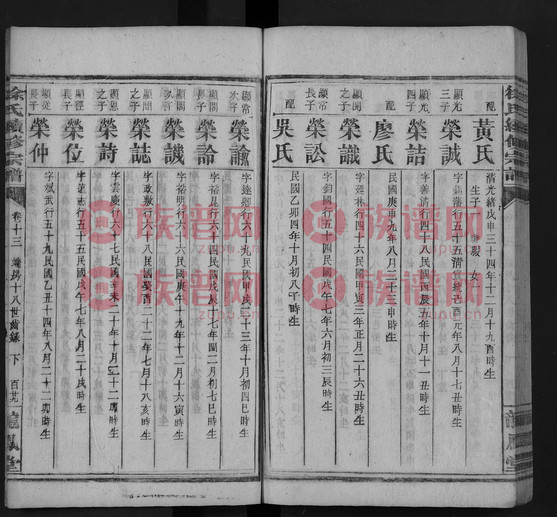 徐氏續修宗譜
配
黃氏
清光緒戊申三十四年十二月十九酉時生
生子
女
顯光
三子
榮誠
宣統己酉元年八月十七戌時生
顯光
四子
榮詰
字善清行四十八民國丙辰五年十月十一丑時生
配
廖氏
民國庚申九年八月二十三申時生
顯開
之子
榮識
字蓮林行四十六民國甲寅三年正月二十六丑時生
顯常
長子
榮訟
字鈞國行五十七民國戊午七年六月初三辰時生
配
吳氏
民國乙卯四年十月初八子時生
顯常
次子
榮諭
字達鄉行六十九民國甲戌二十三年十月初四巳時生
顯開
長子
榮論
字裕昆行六十四民國戊辰十七年閏二月初七巳時生
顯開
次子
榮譏
字裕明行六十六民國庚午十九年十二月十六寅時生
顯間
之子
榮誌
字政猷行六十八民國癸酉二十二年七月十八亥時生
顯恩
之子
榮詩
字雲慶行六十七民國辛未二十年十月二十二寅時生
顯徑
長子
榮位
字蓮志行五十五民國戊午七年八月二十戌時生
顯英
長子
榮仲
字斌武行五十九民國乙丑十四年八月二十二卯時生
徐氏續修宗譜
卷十三
端房十八世齒錄
下
龍鳳堂
龍鳳堂
族谱网
zupu.cn